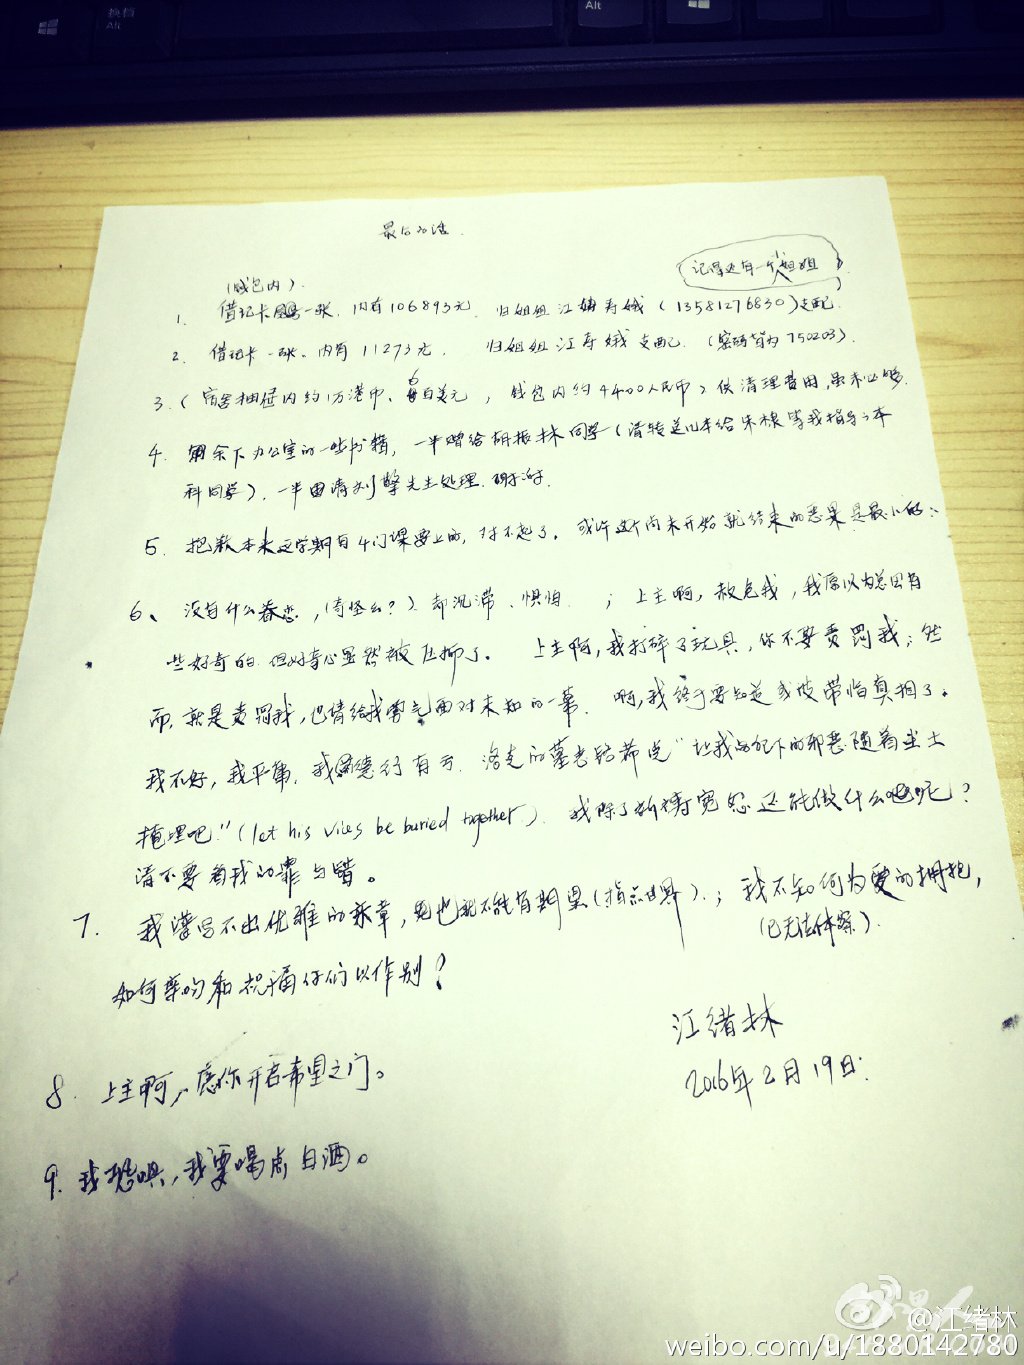 换档
Alt
Alt
最后的话.
记得还有一个小姐姐
(钱包内).
1. 借记卡一张, 内有106893元, 归姐姐江寿娥 (13581276830)支配.
2. 借记卡一张, 内有11273元, 归姐姐江寿娥支配. (密码皆为750203).
3. (宿舍抽屉内约1万港币、6百美元, 钱包内约4400人民币) 供清理费用, 虽未必够.
4. 剩余下办公室的一些书籍, 一半赠给胡振林同学(请转送几本给朱根等我指导的本
科同学), 一半由请刘擎先生处理. 谢谢.
5. 抱歉本来这学期有4门课要上的, 对不起了. 或许这个尚未开始就结束的恶果是最小的;
6、没有什么眷恋, (奇怪么?) 却沉滞、惧怕 ; 上主啊, 赦免我, 我原以为总因有
些好奇的, 但好奇心显然被压抑了. 上主啊, 我打碎了玩具, 你不要责罚我; 然
而, 就是责罚我, 也请给我勇气面对未知的一幕. 啊, 我终于要知道或被带临真相了.
我不好, 我平庸, 我德行有亏. 洛克的墓志铭希望“让我所犯下的邪恶随着尘土
掩埋吧”(let his vices be buried together). 我除了祈祷宽恕还能做什么呢?
请不要看我的罪与错。
7. 我谱写不出优雅的乐章, 也就不能有期望(指示世界).; 我不知何为爱的拥抱,
(已无法体察).
如何亲吻和祝福你们以作别?
江绪林
2016年2月19日.
8. 上主啊, 愿你开启希望之门。
9. 我恐惧, 我要喝点白酒。
@江绪林
weibo.com/u/1880142780